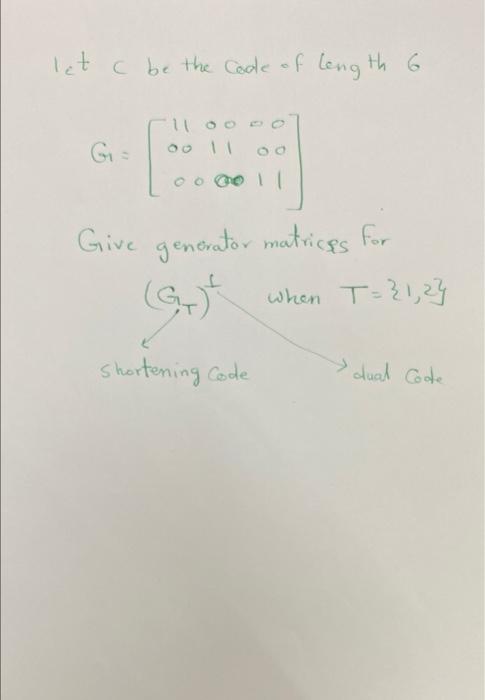 let C be the Code of length 6
G = [ 11 00 00
00 11 00
00 00 11 ]
Give generator matrices for
(G_T)^⊥ when T = {1,2}
shortening Code dual Code